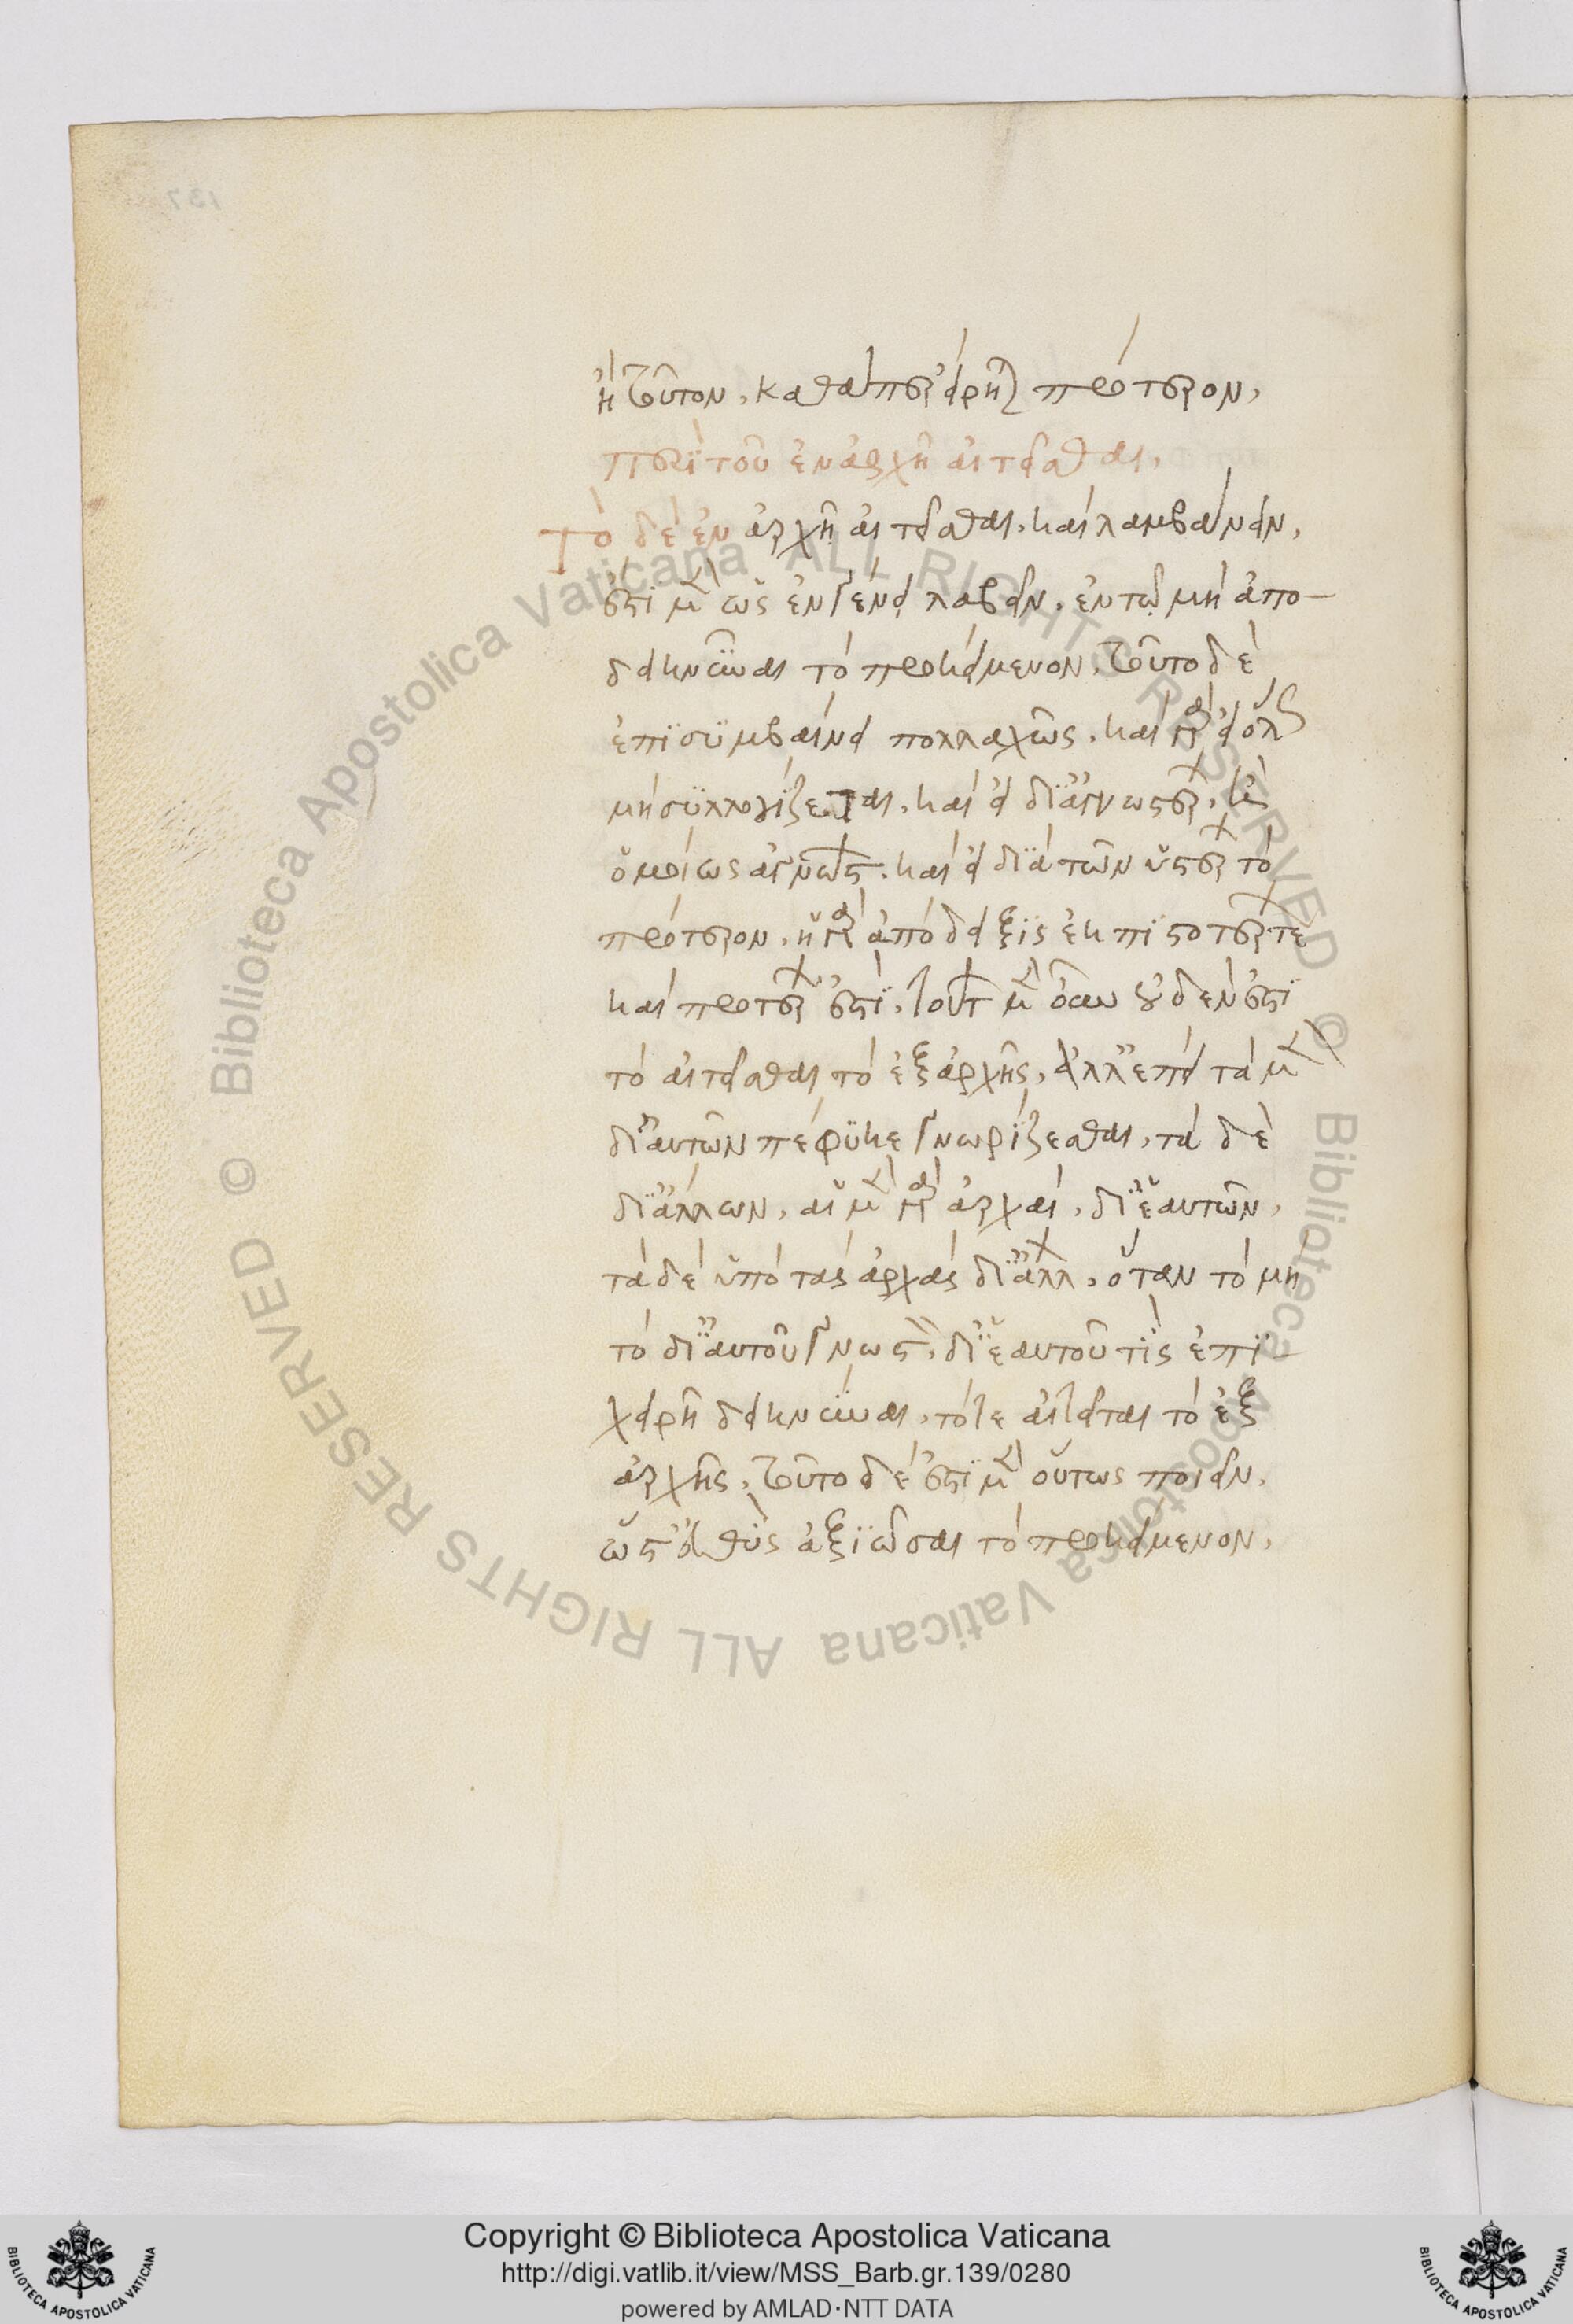 ἢ τοῦτον, καθάπερ εἴρηται πρότερον,
περὶ τοῦ ἐν ἀρχῇ αἰτεῖσθαι,
Τὸ δὲ ἐν ἀρχῇ αἰτεῖσθαι, καὶ λαμβάνειν,
ἐστὶ μὲν ὡς ἐν γένει λαβεῖν, ἐν τῷ μὴ ἀπο-
δεικνύναι τὸ προκείμενον, τοῦτο δὲ
ἐπισυμβαίνει πολλαχῶς, καὶ γὰρ εἰ ὅλως
μὴ συλλογίζεται, καὶ εἰ δι' ἀγνωστοτέρων, ἢ
ὁμοίως ἀγνώστων, καὶ εἰ διὰ τῶν ὑστέρων τὸ
πρότερον, ἡ γὰρ ἀπόδειξις ἐκ πιστοτέρων τε
καὶ προτέρων ἐστὶ, τούτων μὲν οὖν οὐδέν ἐστι
τὸ αἰτεῖσθαι τὸ ἐξ ἀρχῆς, ἀλλ' ἐπεὶ τὰ μὲν
δι' αὐτῶν πέφυκε γνωρίζεσθαι, τὰ δὲ
δι' ἄλλων, αἱ μὲν γὰρ ἀρχαὶ, δι' ἑαυτῶν,
τὰ δὲ ὑπὸ τὰς ἀρχὰς δι' ἄλλων, ὅταν τὸ μὴ
τὸ δι' αὐτοῦ γνωστὸν, δι' ἑαυτοῦ τὶς ἐπι
χειρῇ δεικνύναι, τότε αἰτεῖται τὸ ἐξ
ἀρχῆς, τοῦτο δέ ἐστι μὲν οὕτως ποιεῖν,
ὥστ' εὐθὺς ἀξιῶσαι τὸ προκείμενον,
Copyright © Biblioteca Apostolica Vaticana
http://digi.vatlib.it/view/MSS_Barb.gr.139/0280
powered by AMLAD·NTT DATA